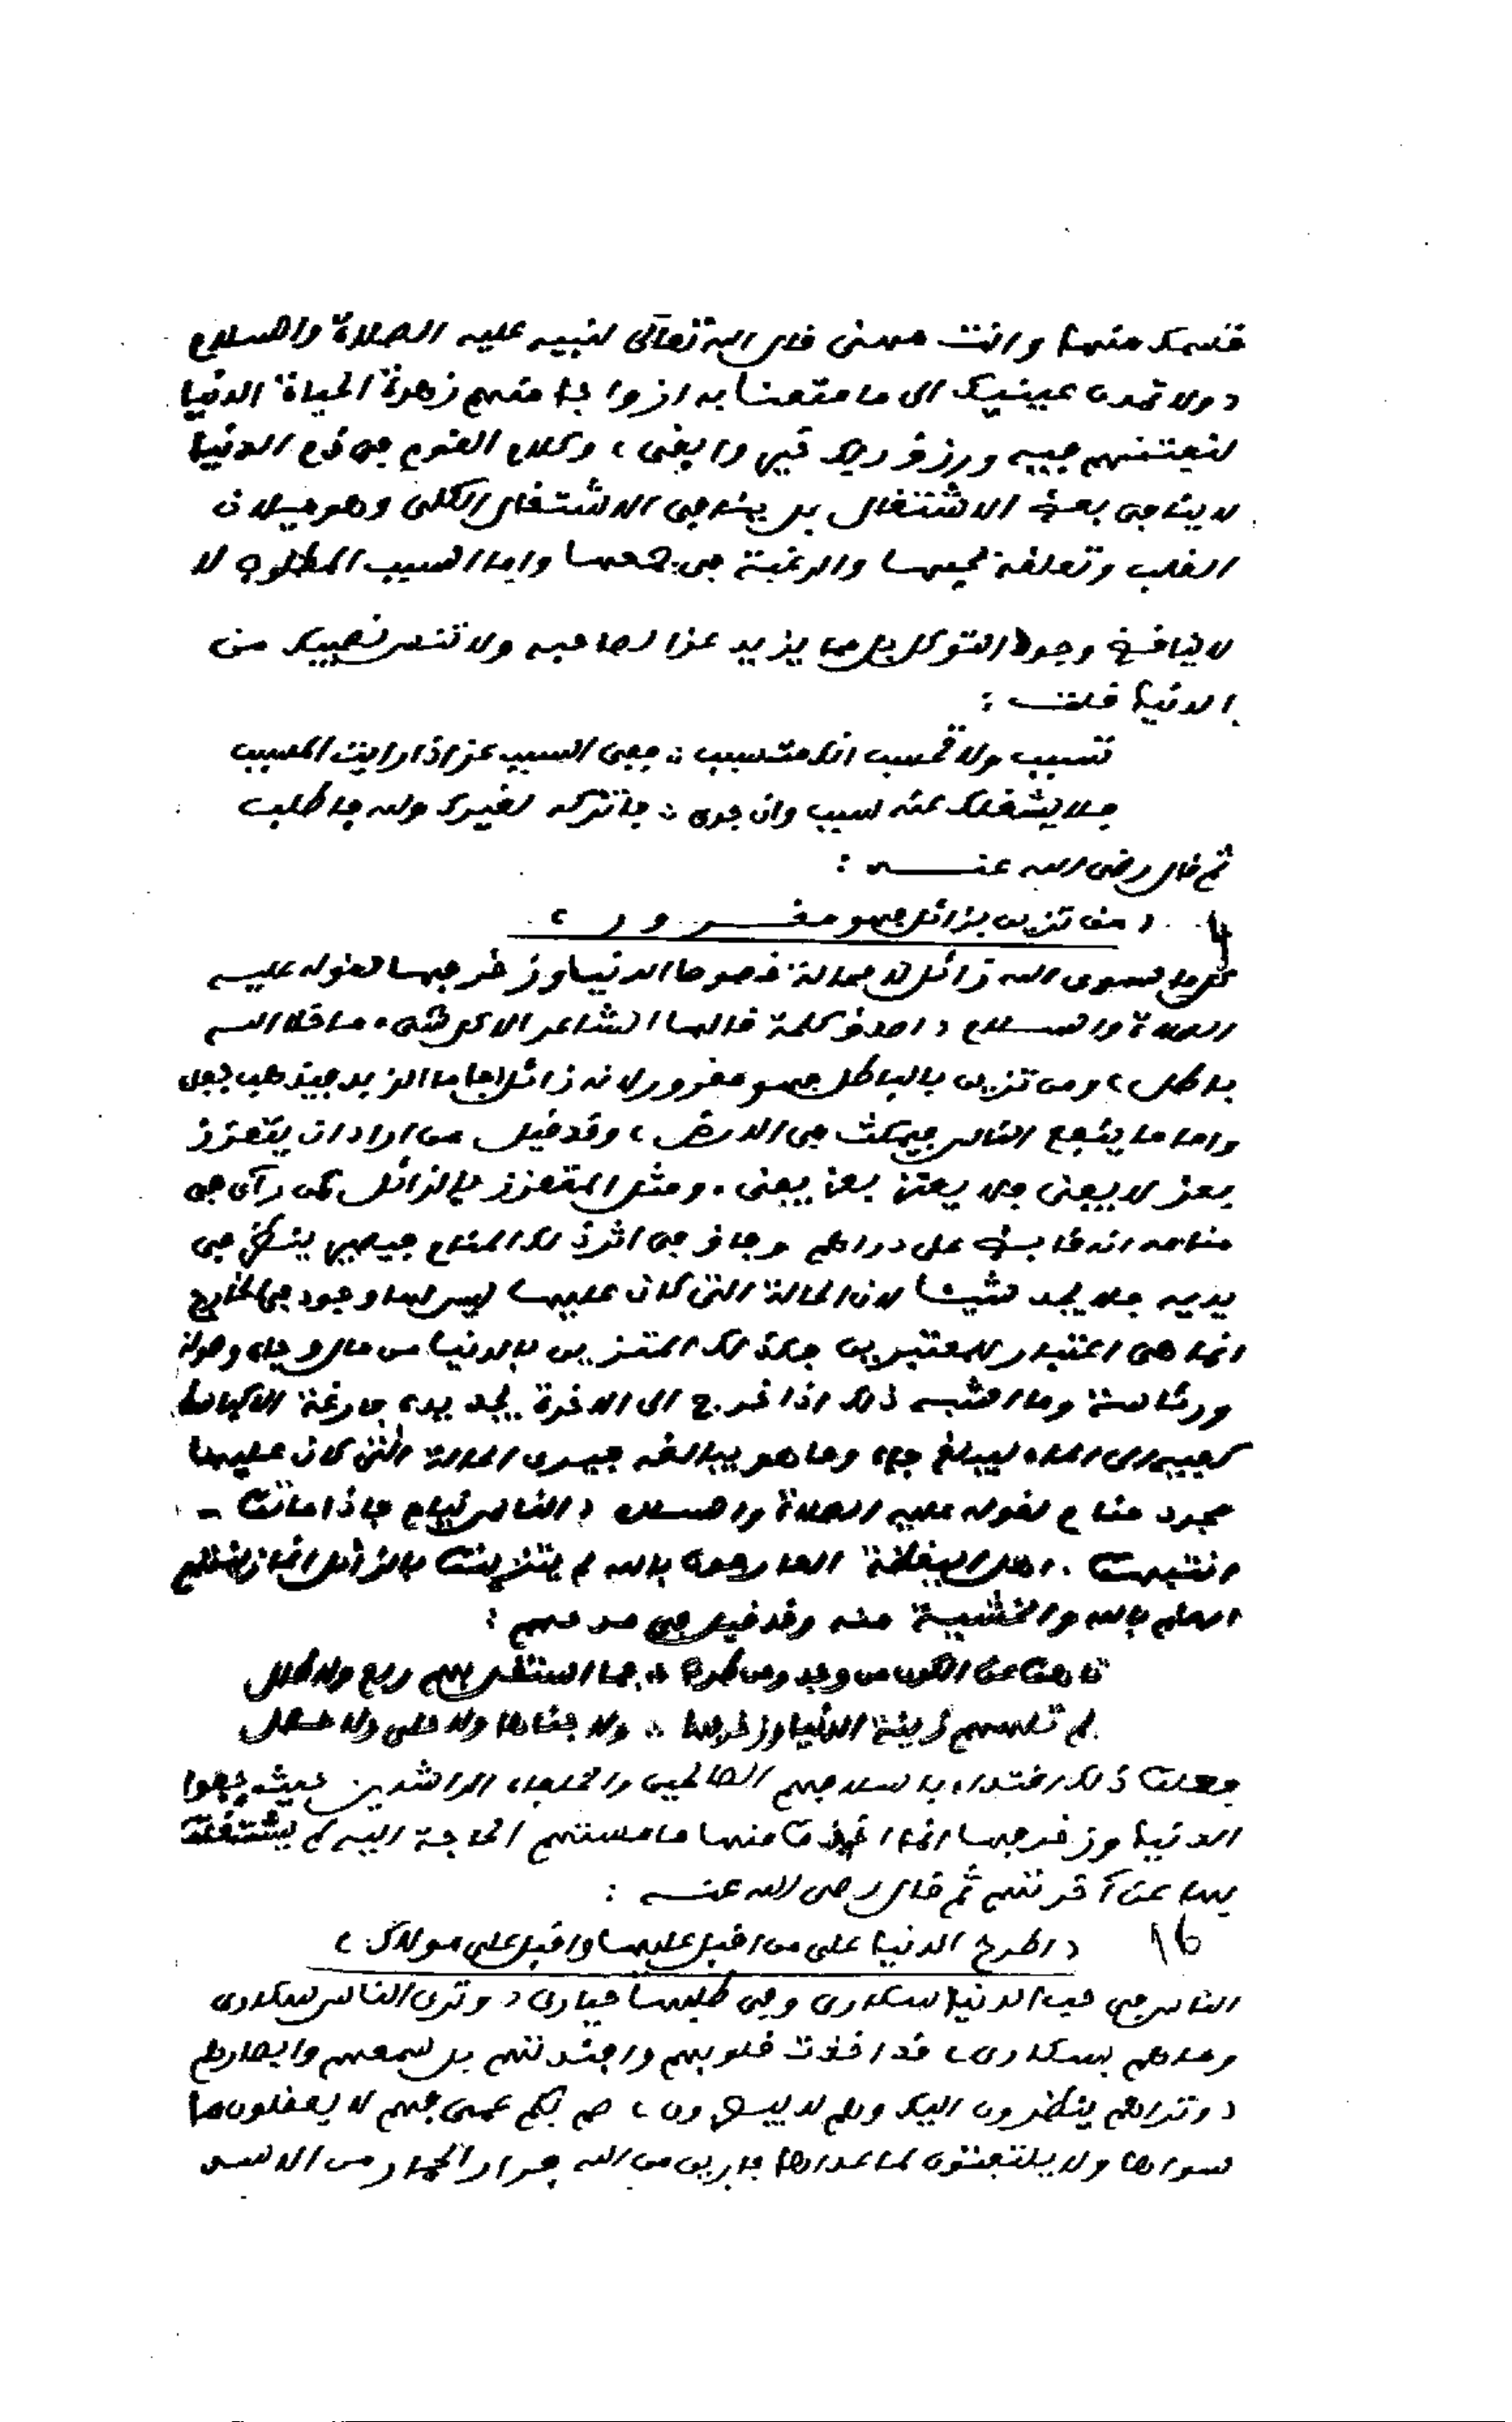 قسمك منها وانت مهنى قال الله تعالى لنبيه عليه الصلاة والسلام
(ولا تمدن عينيك الى ما متعنا به ازواجا منهم زهرة الحياة الدنيا
لنفتنهم فيه ورزق ربك خير وابقى) وكلام القوم في ذم الدنيا
لا ينافي بعض الاشتغال بل ينافي الاشتغال الكلى وهو ميلان
القلب وتعلقه بحبها والرغبة في جمعها واما السبب المطلوب لا
لا يناقض وجود التوكل بل مما يزيد عزا لصاحبه ولا تنس نصيبك من
الدنيا قلت :
تسبب ولا تحسب انك متسبب ∴ ففى السبب عز اذا رايت المسبب
فلا يشغلك عنه سبب وان جرى ∴ فاتركه لغيرك وله فاطلب
ثم قال رضى الله عنه :
(من تزين بزائل فهو مغرور)
كل ما سوى الله زائل لا محالة خصوصا الدنيا وزخرفها لقوله عليه
الصلاة والسلام (اصدق كلمة قالها الشاعر الا كل شىء ما خلا الله
باطل) ومن تزين بالباطل فهو مغرور لانه زائل (فاما الزبد فيذهب جفاء
واما ما ينفع الناس فيمكث في الارض) وقد قيل من اراد ان يتعزز
بعز لا يفنى فلا يعتز بعز يفنى. ومثل المتعزز بالزائل كمن رآى في
منامه انه قابض على دراهم وفاق في اثر ذلك المنام فيبهت ينظر في
يديه فلا يجد شيئا لان الحالة التى كان عليها ليس لها وجود في الخارج
انما هى اعتبار للمعتبرين فكذلك المتزين بالدنيا من مال وجاه وصولة
ورئاسة وما اشبه ذلك اذا خرج الى الاخرة يجد يده فارغة الا كباسط
كفيه الى الماء ليبلغ فاه وما هو ببالغه فيرى الحالة التى كان عليها
مجرد منام لقوله عليه الصلاة والسلام (الناس نيام فاذا ماتوا -
انتبهوا. اهل اليقظة العارفون بالله لم يتزينوا بالزائل انما زينتهم
العلم بالله والخشية منه وقد قيل في مدحهم :
تاهوا عن الكون من وجد ومن طرب ∴ فما استقر بهم ربع ولا طلل
لم تلههم زينة الدنيا وزخرفها ∴ ولا جناها ولا حلى ولا حلل
فعلوا ذلك اقتداء باسلافهم الصالحين والخلفاء الراشدين حيث رفضوا
الدنيا وزخرفها انما اخذوا منها ما مستهم الحاجة اليه لم يشتغلوا
بها عن آخرتهم ثم قال رضى الله عنه :
16 (اطرح الدنيا على من اقبل عليها واقبل على مولاك)
الناس في حب الدنيا سكارى وفي طلبها حيارى (وترى الناس سكارى
وماهم بسكارى) قد اخذت قلوبهم وافئدتهم بل سمعهم وابصارهم
(وتراهم ينظرون اليك وهم لا يبصرون) صم بكم عمى فهم لا يعقلون ما
سواها ولا يلتفتون لما عداها فارين من الله فرار الحمار من الاسد